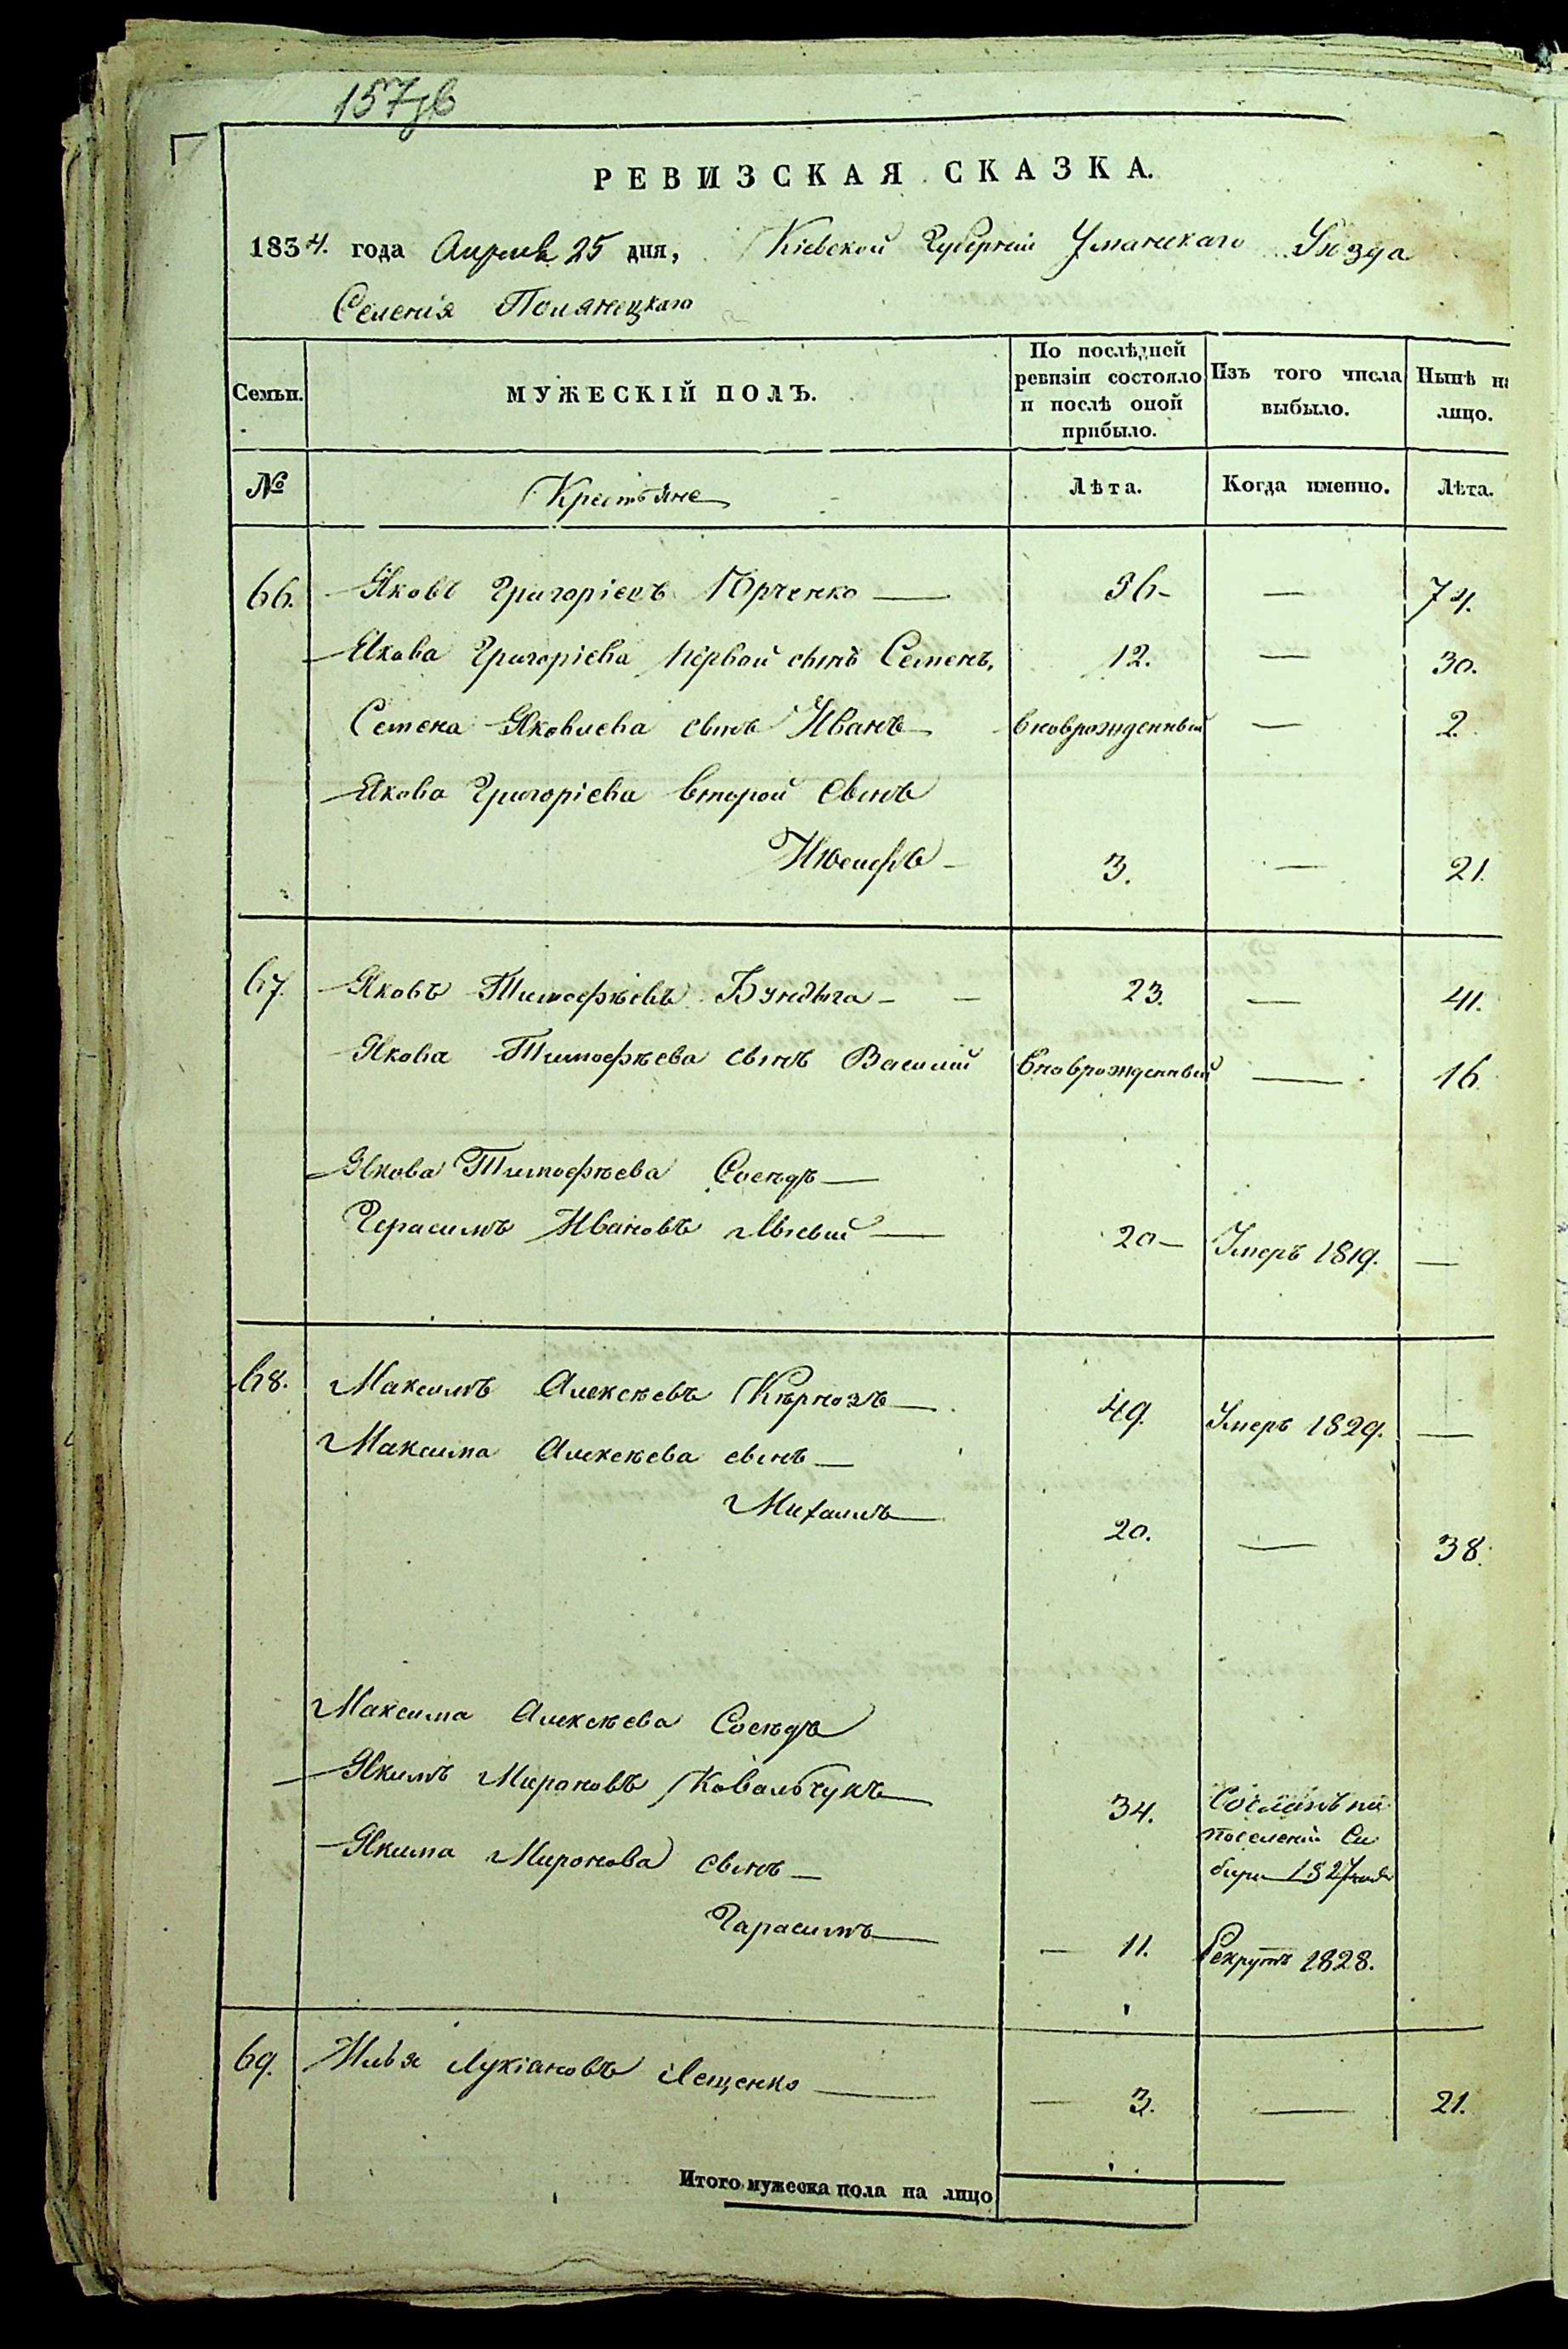 157зв
РЕВИЗСКАЯ СКАЗКА.
1834. года Апреля 25 дня, Кіевской Губерніи Уманскаго Уѣзда
Селенія Полянецкаго
Семьи. МУЖЕСКІЙ ПОЛЪ. По послѣдней ревизіи состояло и послѣ оной прибыло. Изъ того числа выбыло. Нынѣ на лицо.
№ Крестьяне Лѣта. Когда именно. Лѣта.
66. Яковъ Григоріевъ Юрченко — 56 — — 74.
Якова Григоріева первой сынъ Семенъ, 12. — 30.
Семена Яковлева сынъ Иванъ — вноврожденный — 2.
Якова Григоріева второй сынъ
Иосифъ — 3. — 21.
67. Яковъ Тимофѣевъ Бундыга — — 23. — 41.
Якова Тимофѣева сынъ Василий вноврожденный — 16
Якова Тимофѣева Сосѣдъ —
Герасимъ Ивановъ — 20 — Умеръ 1819. —
68. Максимъ Алексѣевъ Кѣрнозъ — 49. Умеръ 1829. —
Максима Алексѣева сынъ —
Михаилъ — 20. — 38.
Максима Алексѣева Сосѣдъ
Якимъ Мироновъ Ковальчукъ — 34. Сосланъ на
поселеніи Си
бири 1827 года
Якима Миронова сынъ —
Гарасимъ — — 11. Рекрутъ 1828.
69. Илья Лукіановъ Лещенко — — 3. — 21.
Итого мужеска пола на лицо